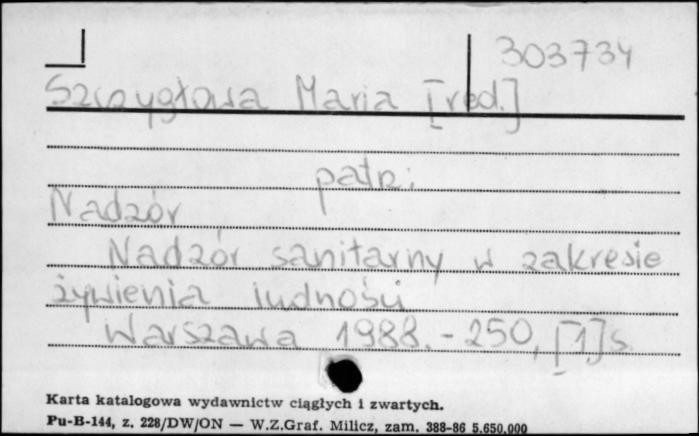 303734
Szczygłowa Maria [red.]
patrz:
Nadzór
Nadzór sanitarny w zakresie
żywienia ludności
Warszawa 1988. - 250, [1] s.
Karta katalogowa wydawnictw ciągłych i zwartych.
Pu-B-144, z. 228/DW/ON — W.Z.Graf. Milicz, zam. 388-86 5.650.000